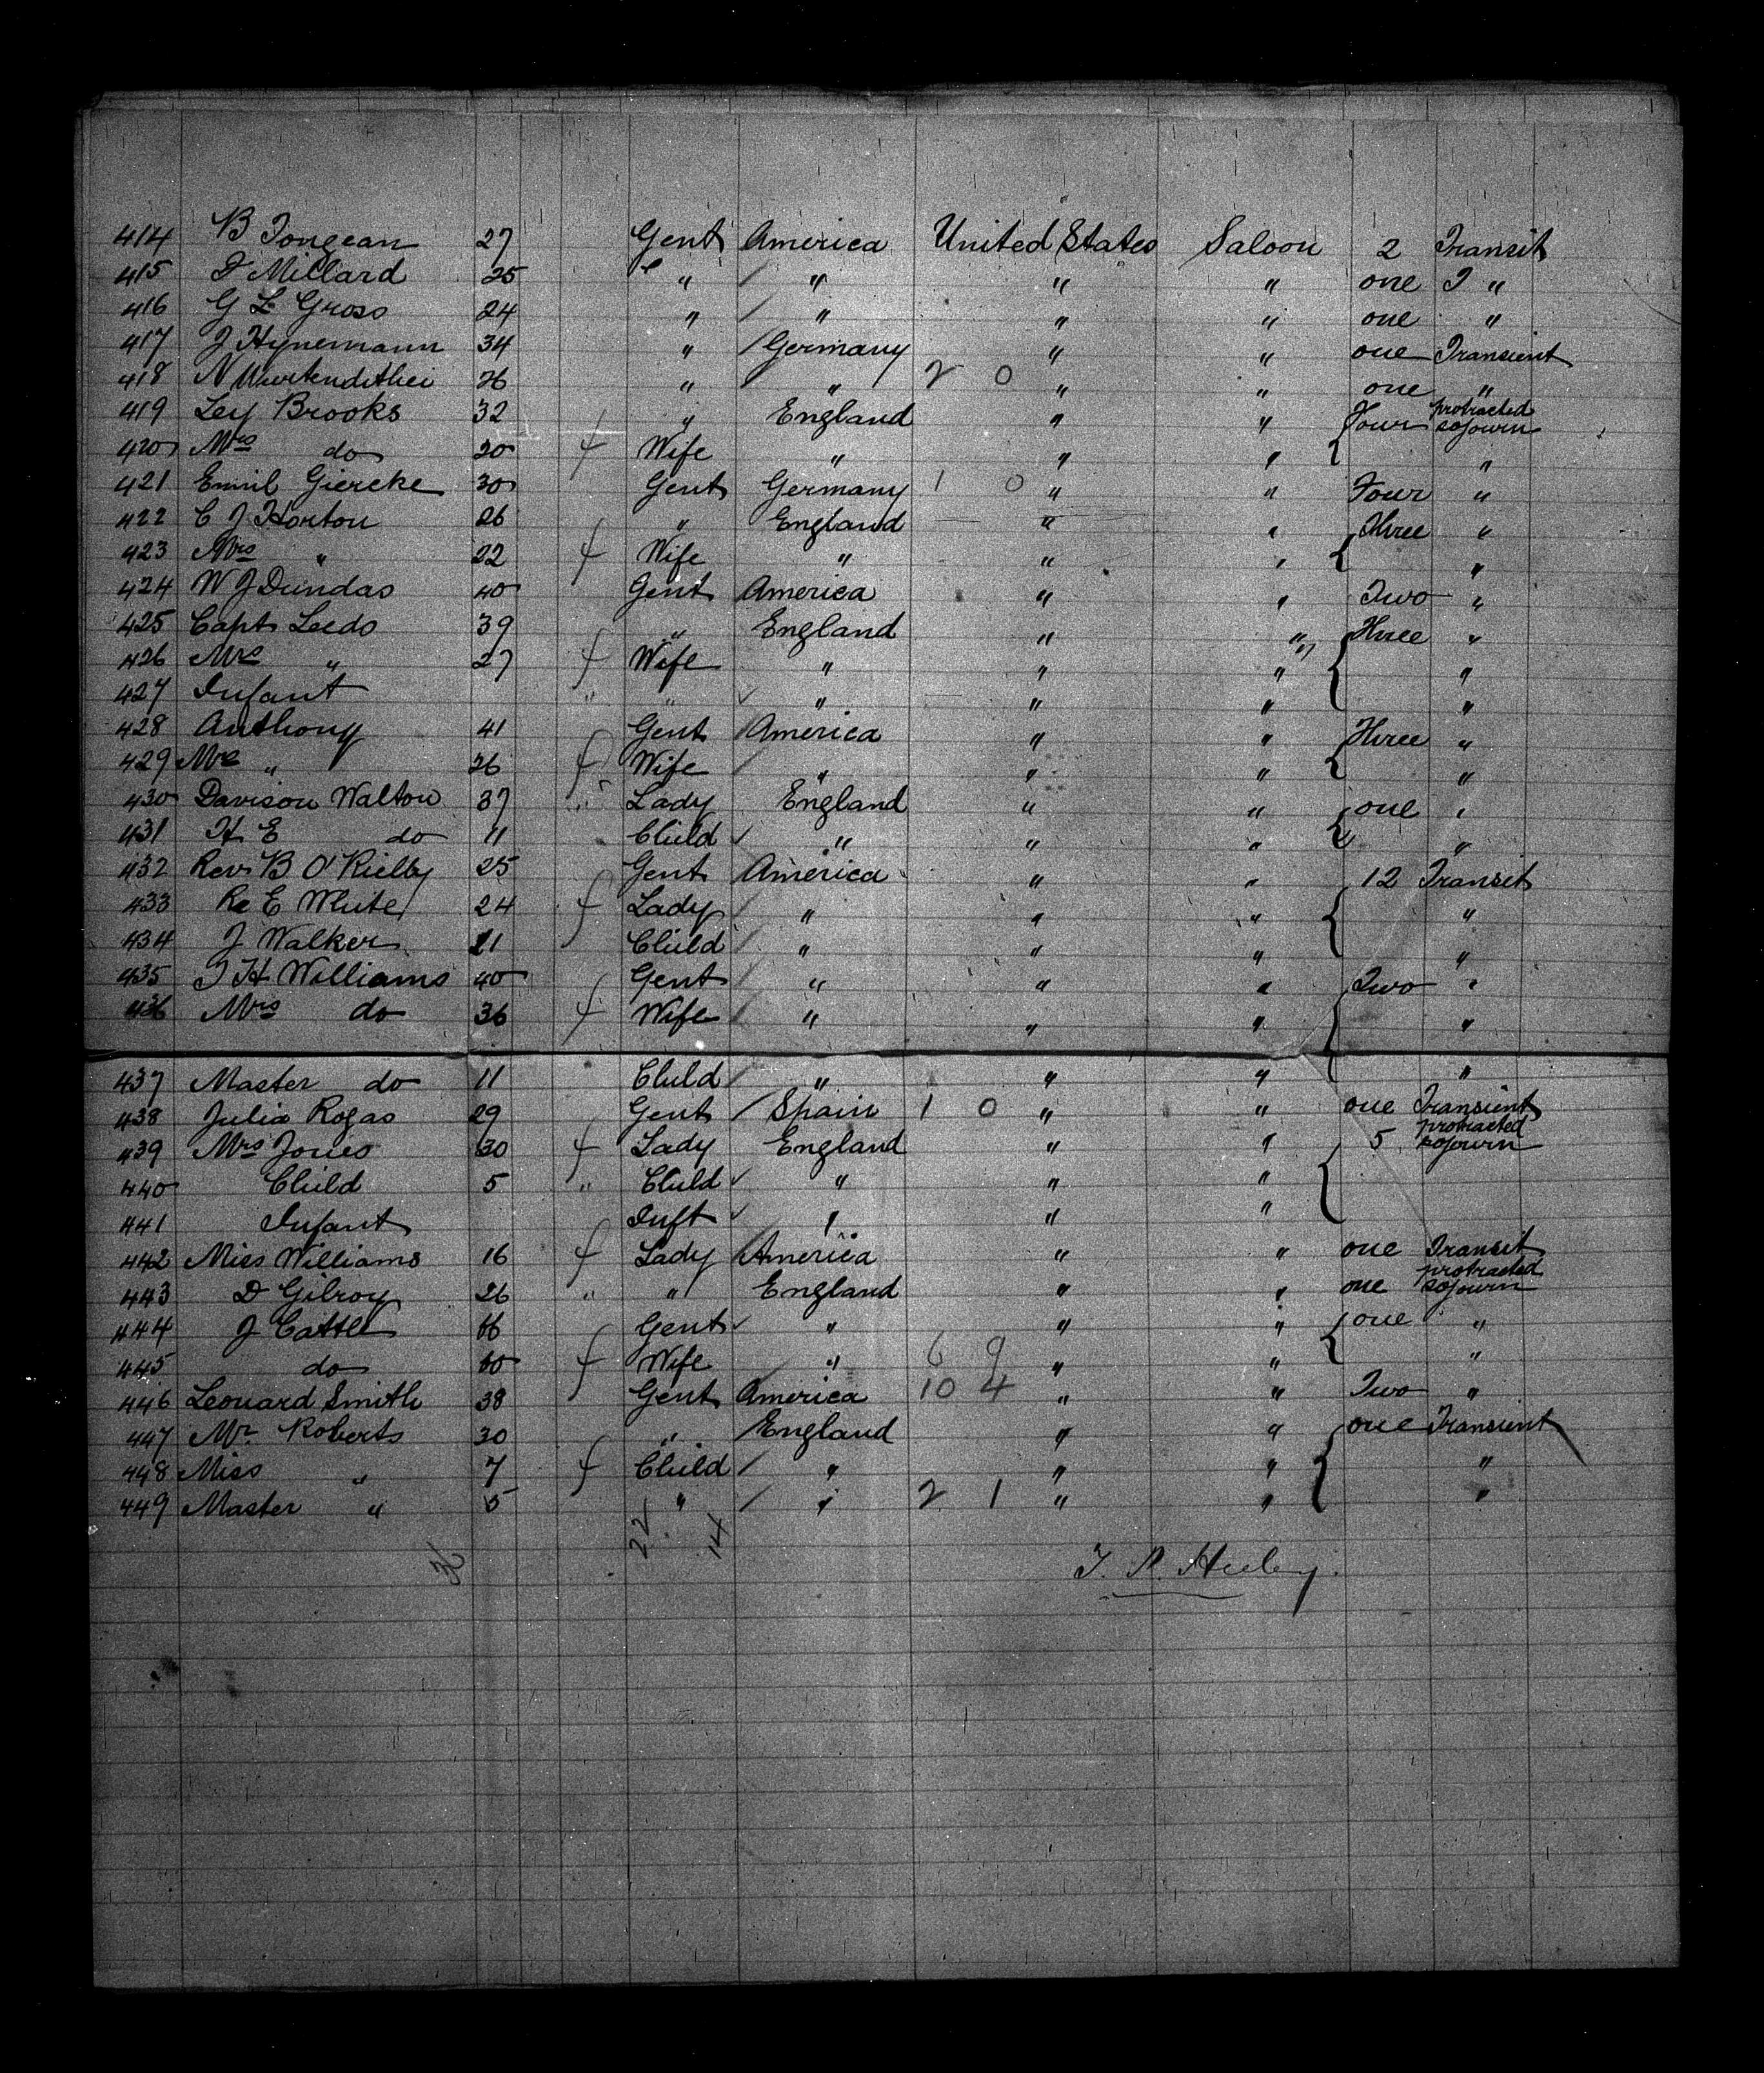 414 B Tongean 27 Gent America United States Saloon 2 Transit
415 D Millard 25 " " " " one T "
416 G L Gross 24 " " " " one "
417 J Hynemann 34 " Germany " " one Transient
418 N 26 " " 2 0 " " one "
419 Ley Brooks 32 " England " " Four protracted sojourn
420 Mrs do 20 f Wife " " " "
421 Emil Giercke 30 Gent Germany 1 0 " " Four "
422 C J Horton 26 " England " " Three "
423 Mrs " 22 f Wife " " " "
424 W J Dundas 40 Gent America " " Two "
425 Capt Leeds 39 " England " " Three "
426 Mrs " 27 f Wife " " " "
427 Infant " " " " " "
428 Anthony 41 Gent America " " Three "
429 Mrs " 26 f Wife " " " "
430 Davison Walton 37 " Lady England " " one "
431 H E do 11 Child " " " "
432 Rev B O'Rielly 25 Gent America " " 12 Transit
433 Re E White 24 f Lady " " " "
434 J Walker 21 Child " " " "
435 T H Williams 40 Gent " " " Two "
436 Mrs do 36 f Wife " " " "
437 Master do 11 Child " " " "
438 Julia Rogas 29 Gent Spain 1 0 " " one Transient
439 Mrs Jones 30 f Lady England " " 5 protracted sojourn
440 Child 5 " Child " " "
441 Infant Inft " " "
442 Miss Williams 16 f Lady America " " one Transit
443 D Gilroy 26 " " England " " one protracted sojourn
444 J Cattle 66 Gent " " " one "
445 do 60 f Wife " 6 9 " " "
446 Leonard Smith 38 Gent America 10 4 " " Two "
447 Mr. Roberts 30 " England " " one Transient
448 Miss " 7 f Child " " " "
449 Master " 5 " " 2 1 " " "
36 22 14